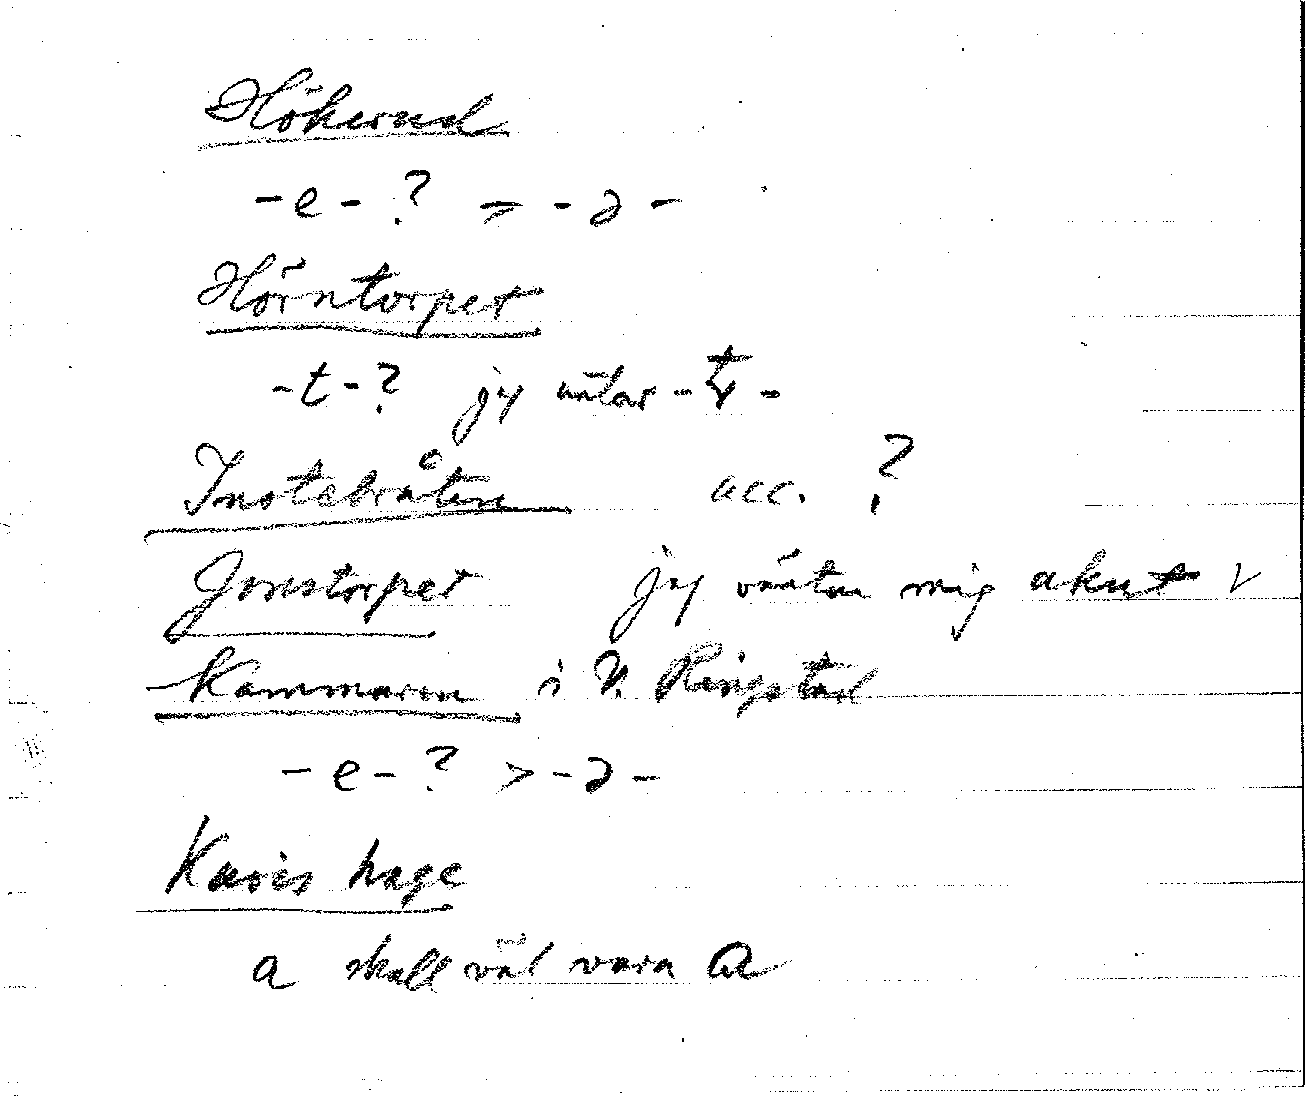 Hökerud
-e-? > -ə-
Hörntorpet
-t-? jag -t-
Instebråten acc. ?
Jonstorpet jag väntar mig akut
Kammaren i V. Ringstad
-e-? > -ə-
Karis hage
a skall väl vara a